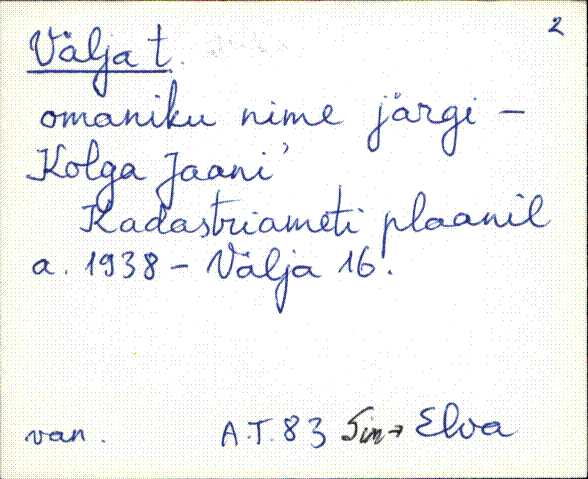 2
Välja t.
omaniku nime järgi –
Kolga Jaani'
Kadastriameti plaanil
a. 1938 – Välja 16.
van. A.T. 83 → Elva